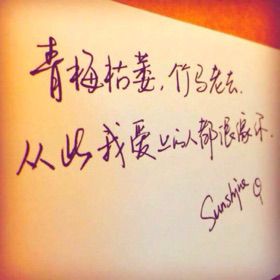 青梅枯萎，竹马老去。
从此我爱上的人都很像你。
Sunshine